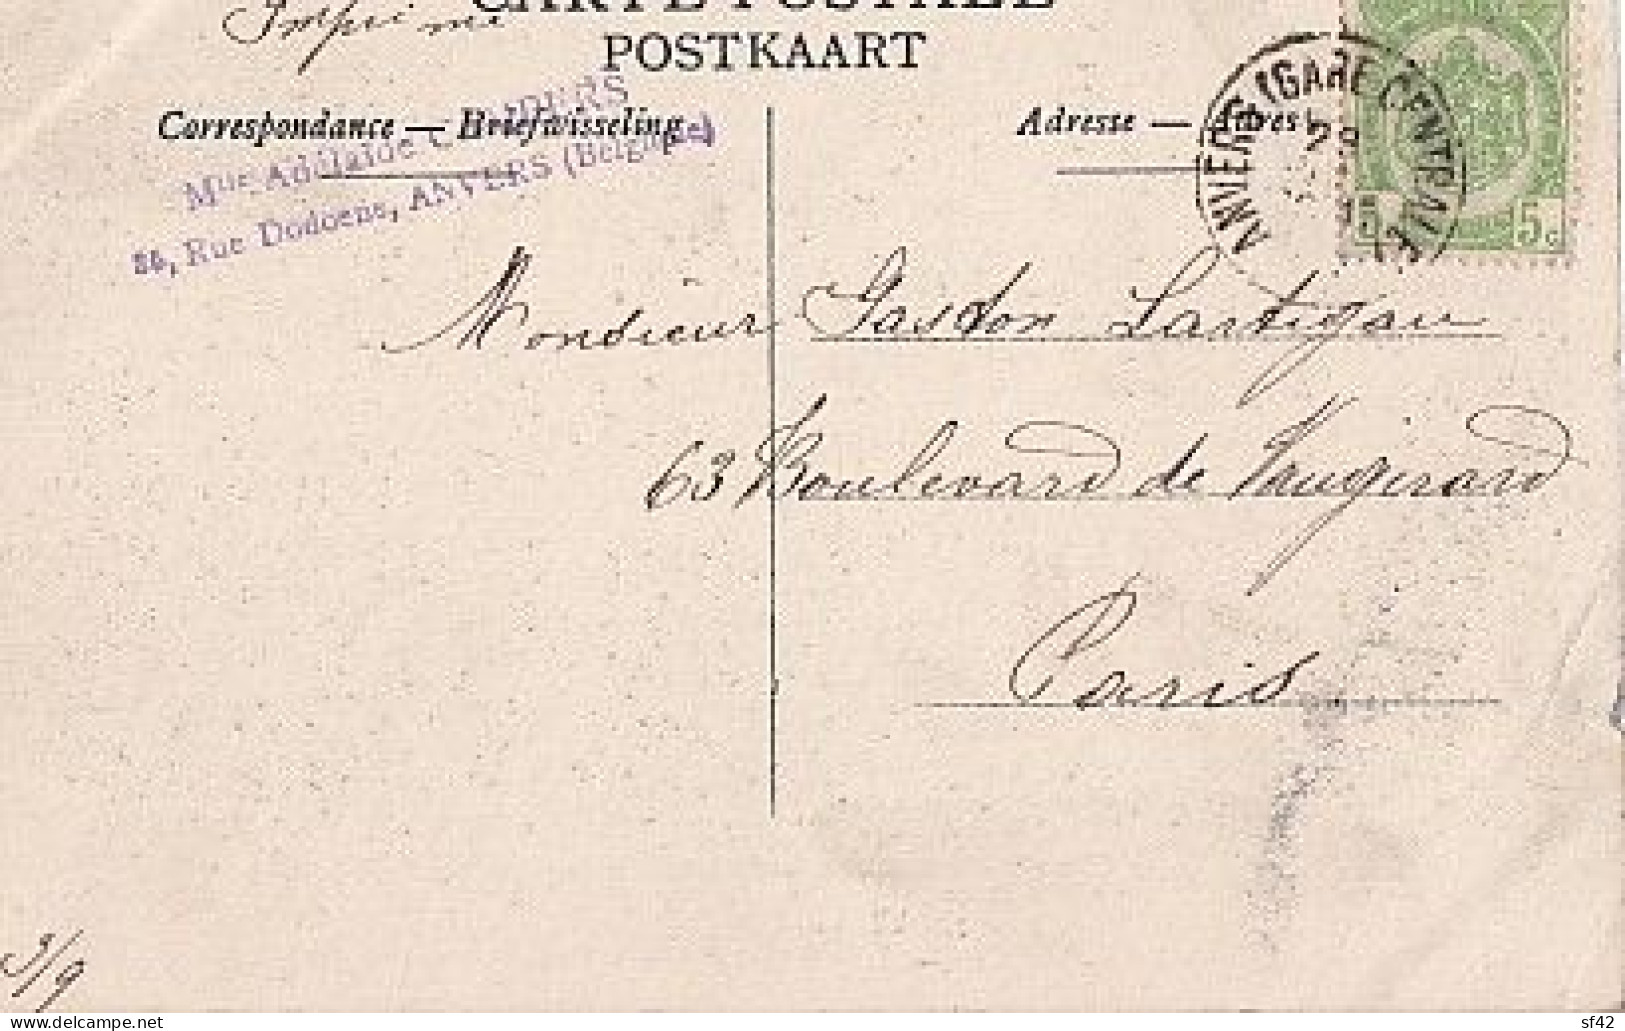 Imprimé
CARTE POSTALE
POSTKAART
Correspondance — Briefwisseling
Adresse —
Mlle Adélaïde
54, Rue Dodoens, ANVERS (Belgique)
ANVERS (GARE CENTRALE)
5c
Monsieur Gaston Lartigau
63 Boulevard de Vaugirard
Paris
3/9
delcampe.net
sf42